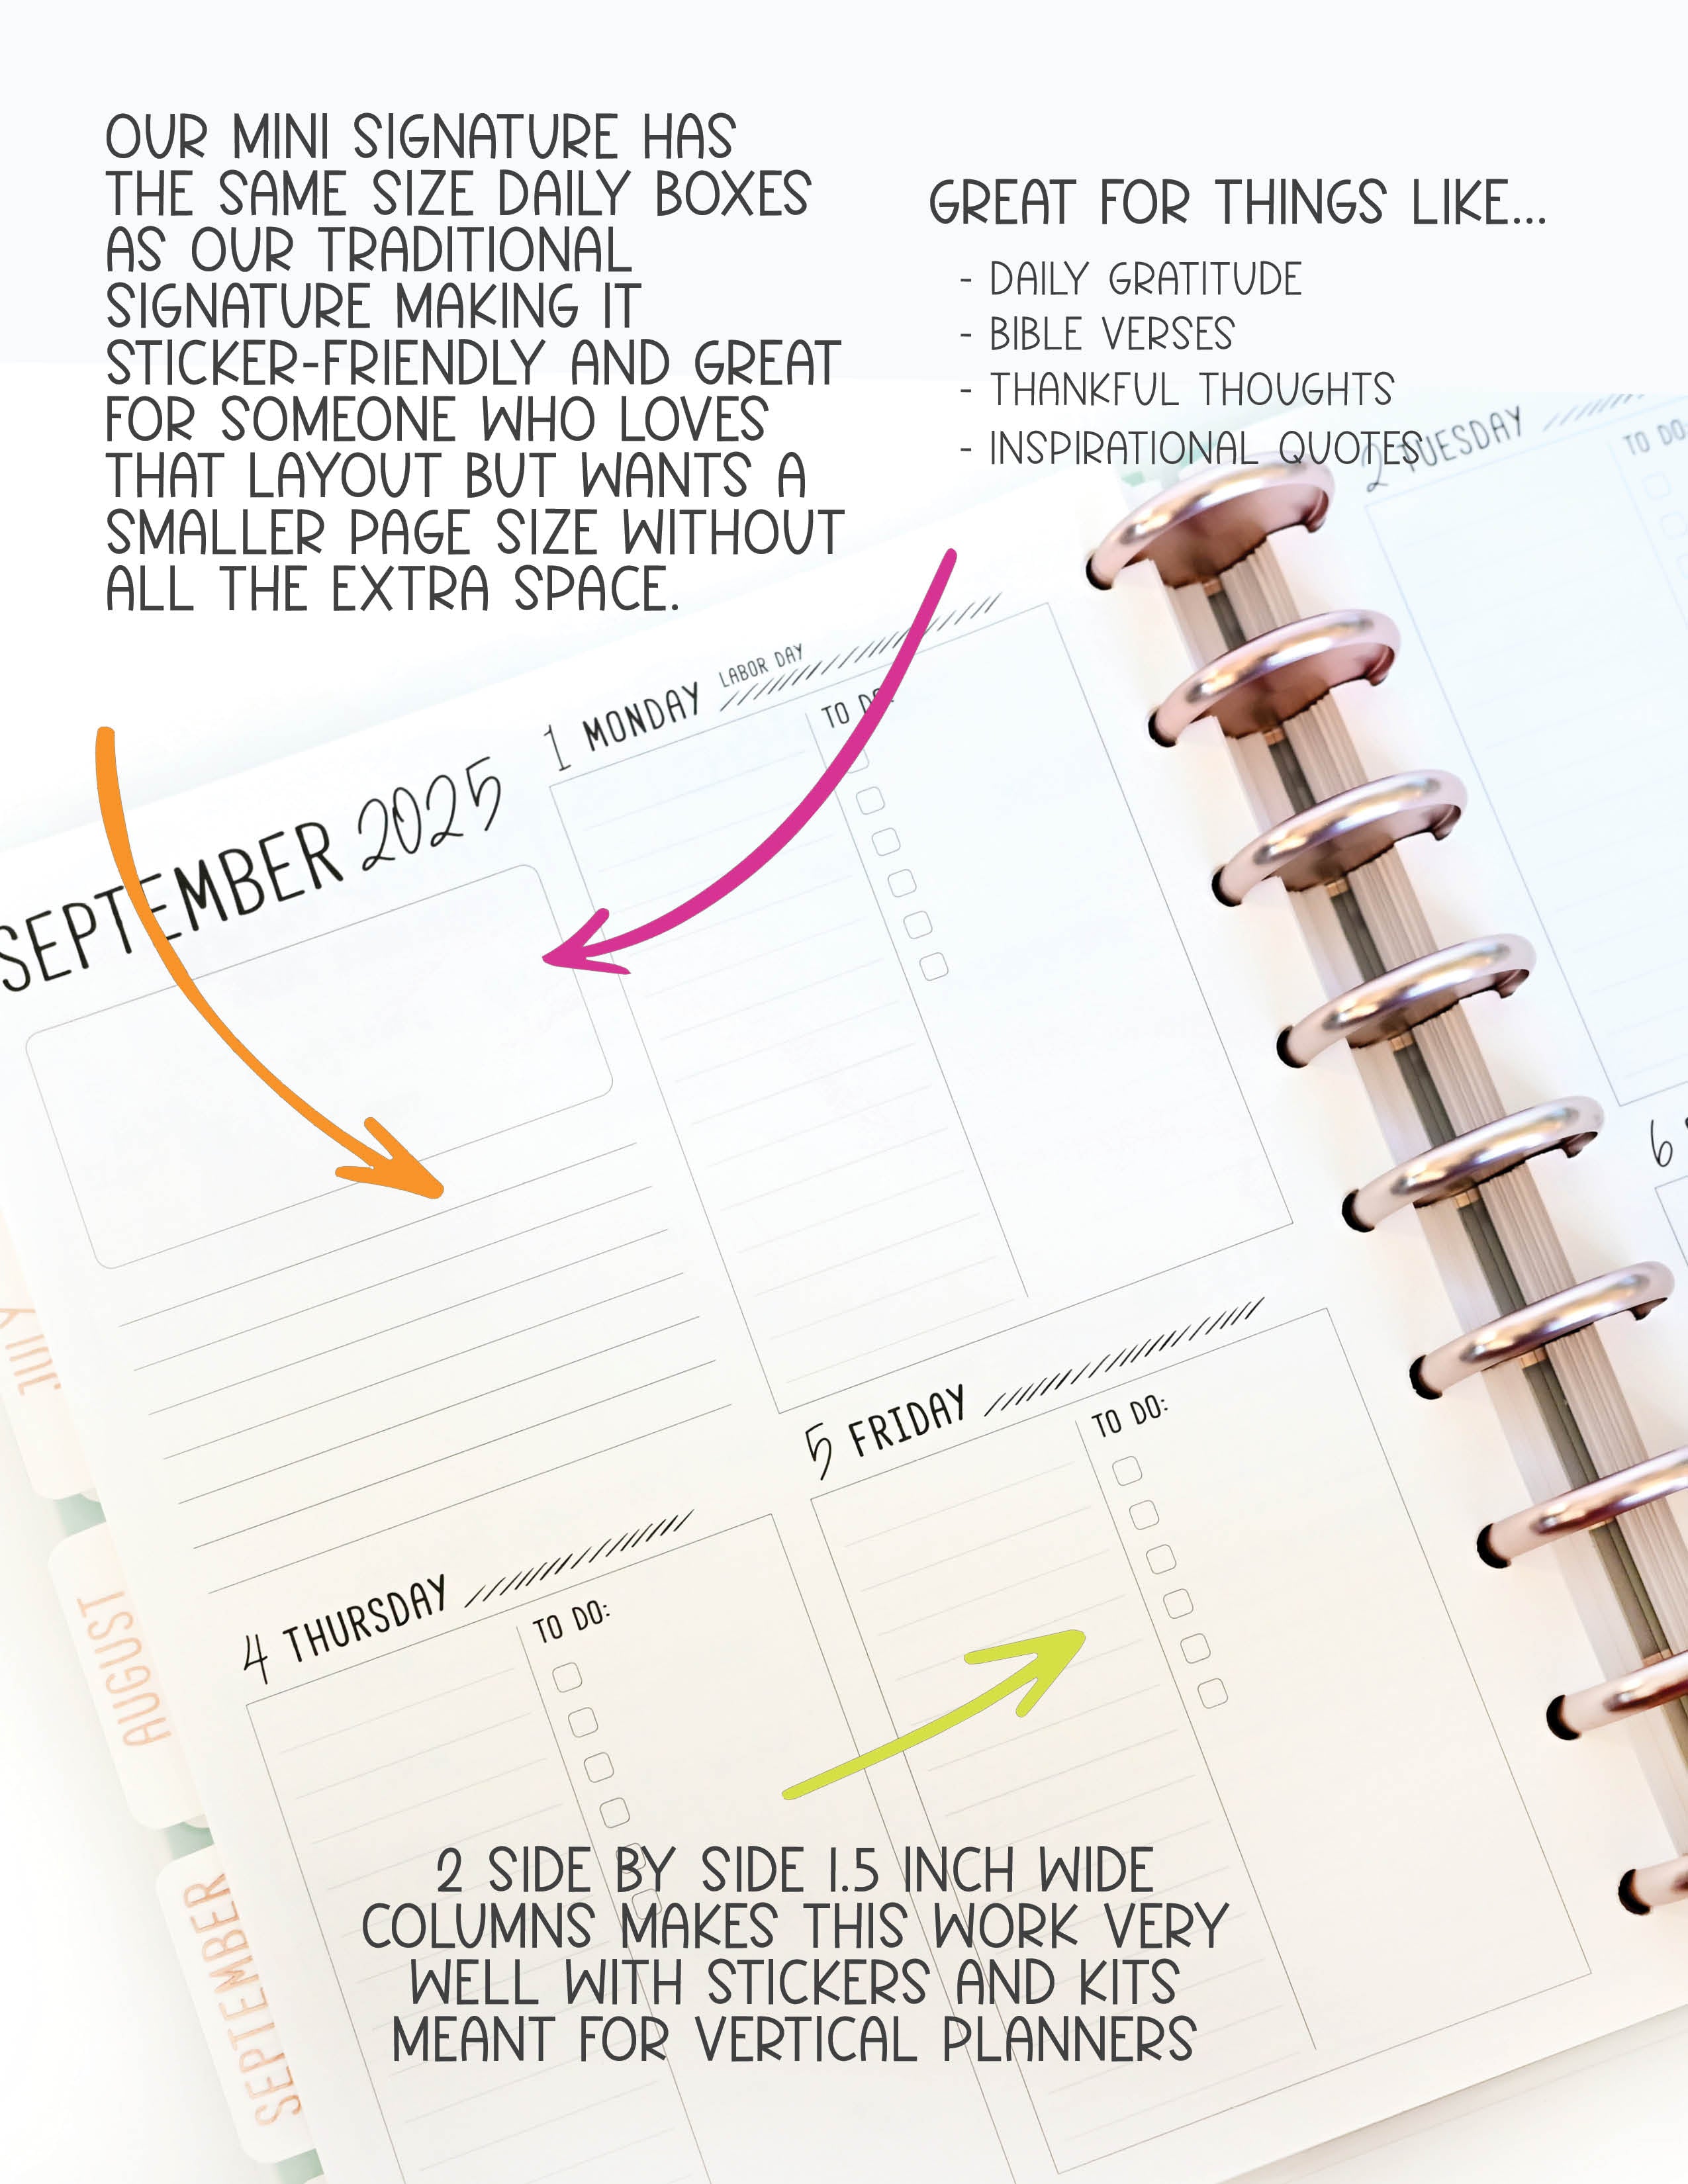 OUR MINI SIGNATURE HAS
THE SAME SIZE DAILY BOXES
AS OUR TRADITIONAL
SIGNATURE MAKING IT
STICKER-FRIENDLY AND GREAT
FOR SOMEONE WHO LOVES
THAT LAYOUT BUT WANTS A
SMALLER PAGE SIZE WITHOUT
ALL THE EXTRA SPACE.
GREAT FOR THINGS LIKE...
- DAILY GRATITUDE
- BIBLE VERSES
- THANKFUL THOUGHTS
- INSPIRATIONAL QUOTES
2 TUESDAY
TO DO:
SEPTEMBER 2025
1 MONDAY LABOR DAY
TO DO:
6
5 FRIDAY
TO DO:
4 THURSDAY
TO DO:
JULY
AUGUST
SEPTEMBER
2 SIDE BY SIDE 1.5 INCH WIDE
COLUMNS MAKES THIS WORK VERY
WELL WITH STICKERS AND KITS
MEANT FOR VERTICAL PLANNERS